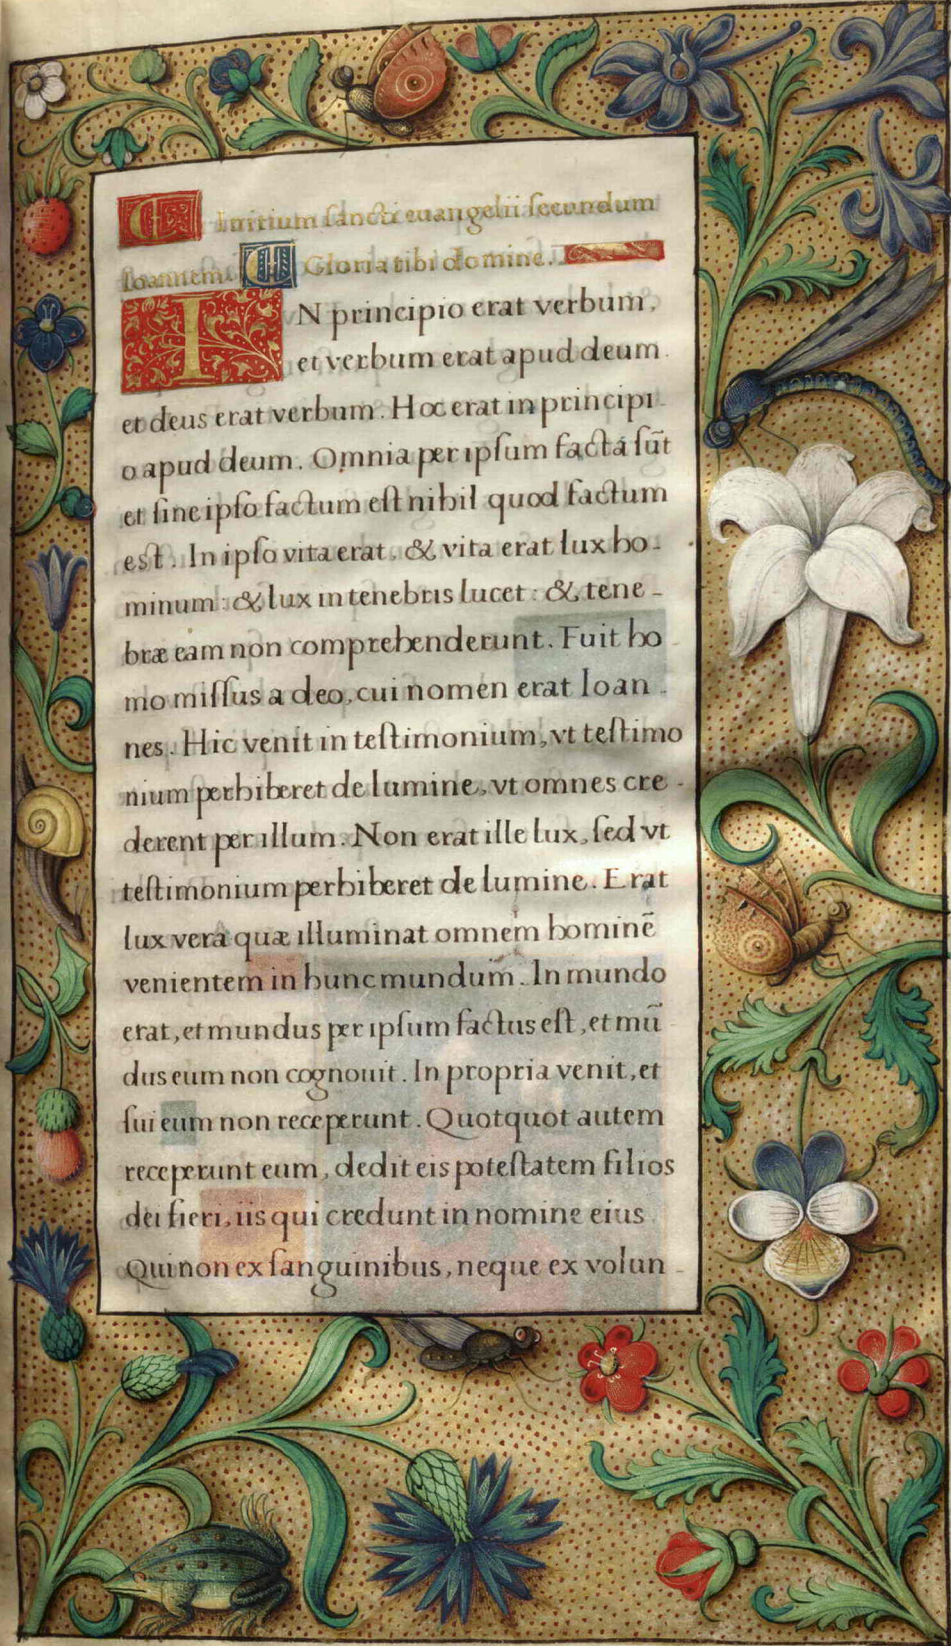 Initium sancti euangelii secundum
Ioannem. Gloria tibi domine.
IN principio erat verbum,
et verbum erat apud deum.
et deus erat verbum. Hoc erat in principi
o apud deum. Omnia per ipsum facta sūt
et sine ipso factum est nihil quod factum
est. In ipso vita erat, & vita erat lux ho-
minum: & lux in tenebris lucet: & tene-
bræ eam non comprehenderunt. Fuit ho
mo missus a deo, cui nomen erat Ioan-
nes. Hic venit in testimonium, vt testimo
nium perhiberet de lumine, vt omnes cre-
derent per illum. Non erat ille lux, sed vt
testimonium perhiberet de lumine. Erat
lux vera quæ illuminat omnem hominē
venientem in hunc mundum. In mundo
erat, et mundus per ipsum factus est, et mū
dus eum non cognouit. In propria venit, et
sui eum non receperunt. Quotquot autem
receperunt eum, dedit eis potestatem filios
dei fieri, iis qui credunt in nomine eius
Qui non ex sanguinibus, neque ex volun-